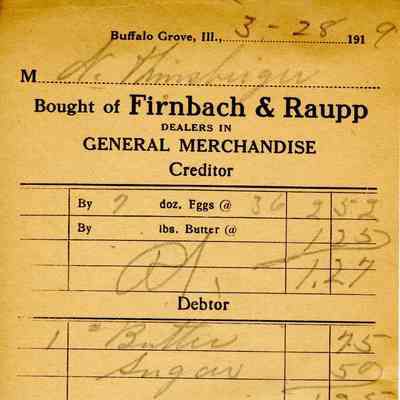 Buffalo Grove, Ill., 3-28 1919
M N.
Bought of Firnbach & Raupp
DEALERS IN
GENERAL MERCHANDISE
Creditor
By 7 doz. Eggs @ 36 2 52
By lbs. Butter @ 1 25
1.27
Debtor
1 " Butter 75
Sugar 50
1 25